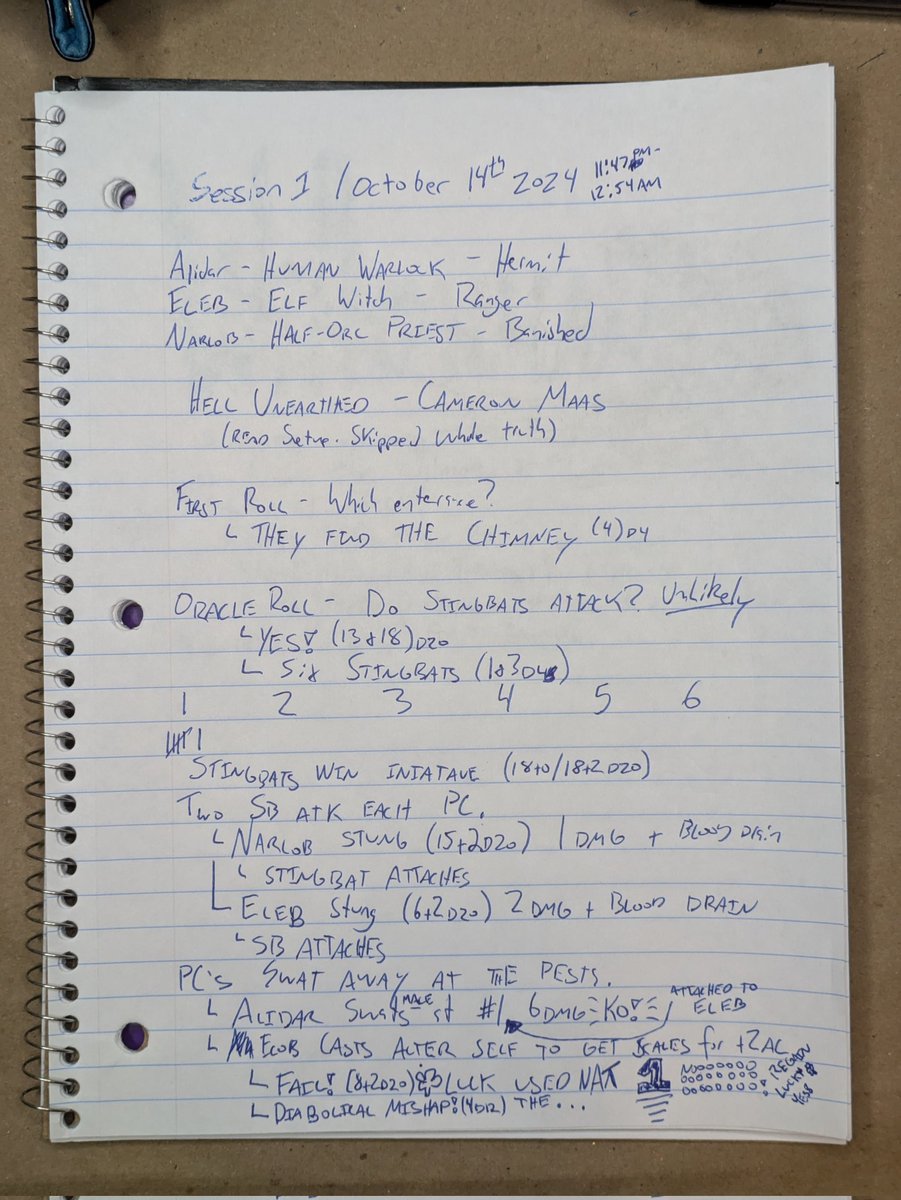 Session 1 / October 14th 2024 11:47PM-
12:54AM
Alidar - HUMAN WARLOCK - Hermit
ELEB - ELF Witch - Ranger
NARLOB - HALF-ORC PRIEST - Banished
HELL UNEARTHED - CAMERON MAAS
(READ Setup. Skipped whole truth)
FIRST ROLL - Which enterance?
THEY FIND THE CHIMNEY (4)D4
ORACLE ROLL - Do STINGBATS ATTACK? Unlikely
YES! (13&18)D20
Six STINGBATS (1&3D4s)
1 2 3 4 5 6
STINGBATS WIN INIATAVE (18+0/18+2D20)
Two SB ATK EACH PC.
NARLOB STUNG (15+2D20) 1 DMG + Blood Drain
STINGBAT ATTACHES
ELEB Stung (6+2D20) 2 DMG + BLOOD DRAIN
SB ATTACHES
PC's SWAT AWAY AT THE PESTS.
ALIDAR Swats MACE at #1 6DMG KO! ATTACHED TO ELEB
CASTS ALTER SELF TO GET SCALES for +2AC
FAIL! (8+2D20) LUCK USED NAT 1 NOOOOOOOO
REGAIN LUCK
DIABOLICAL MISHAP! (4D12) THE ...